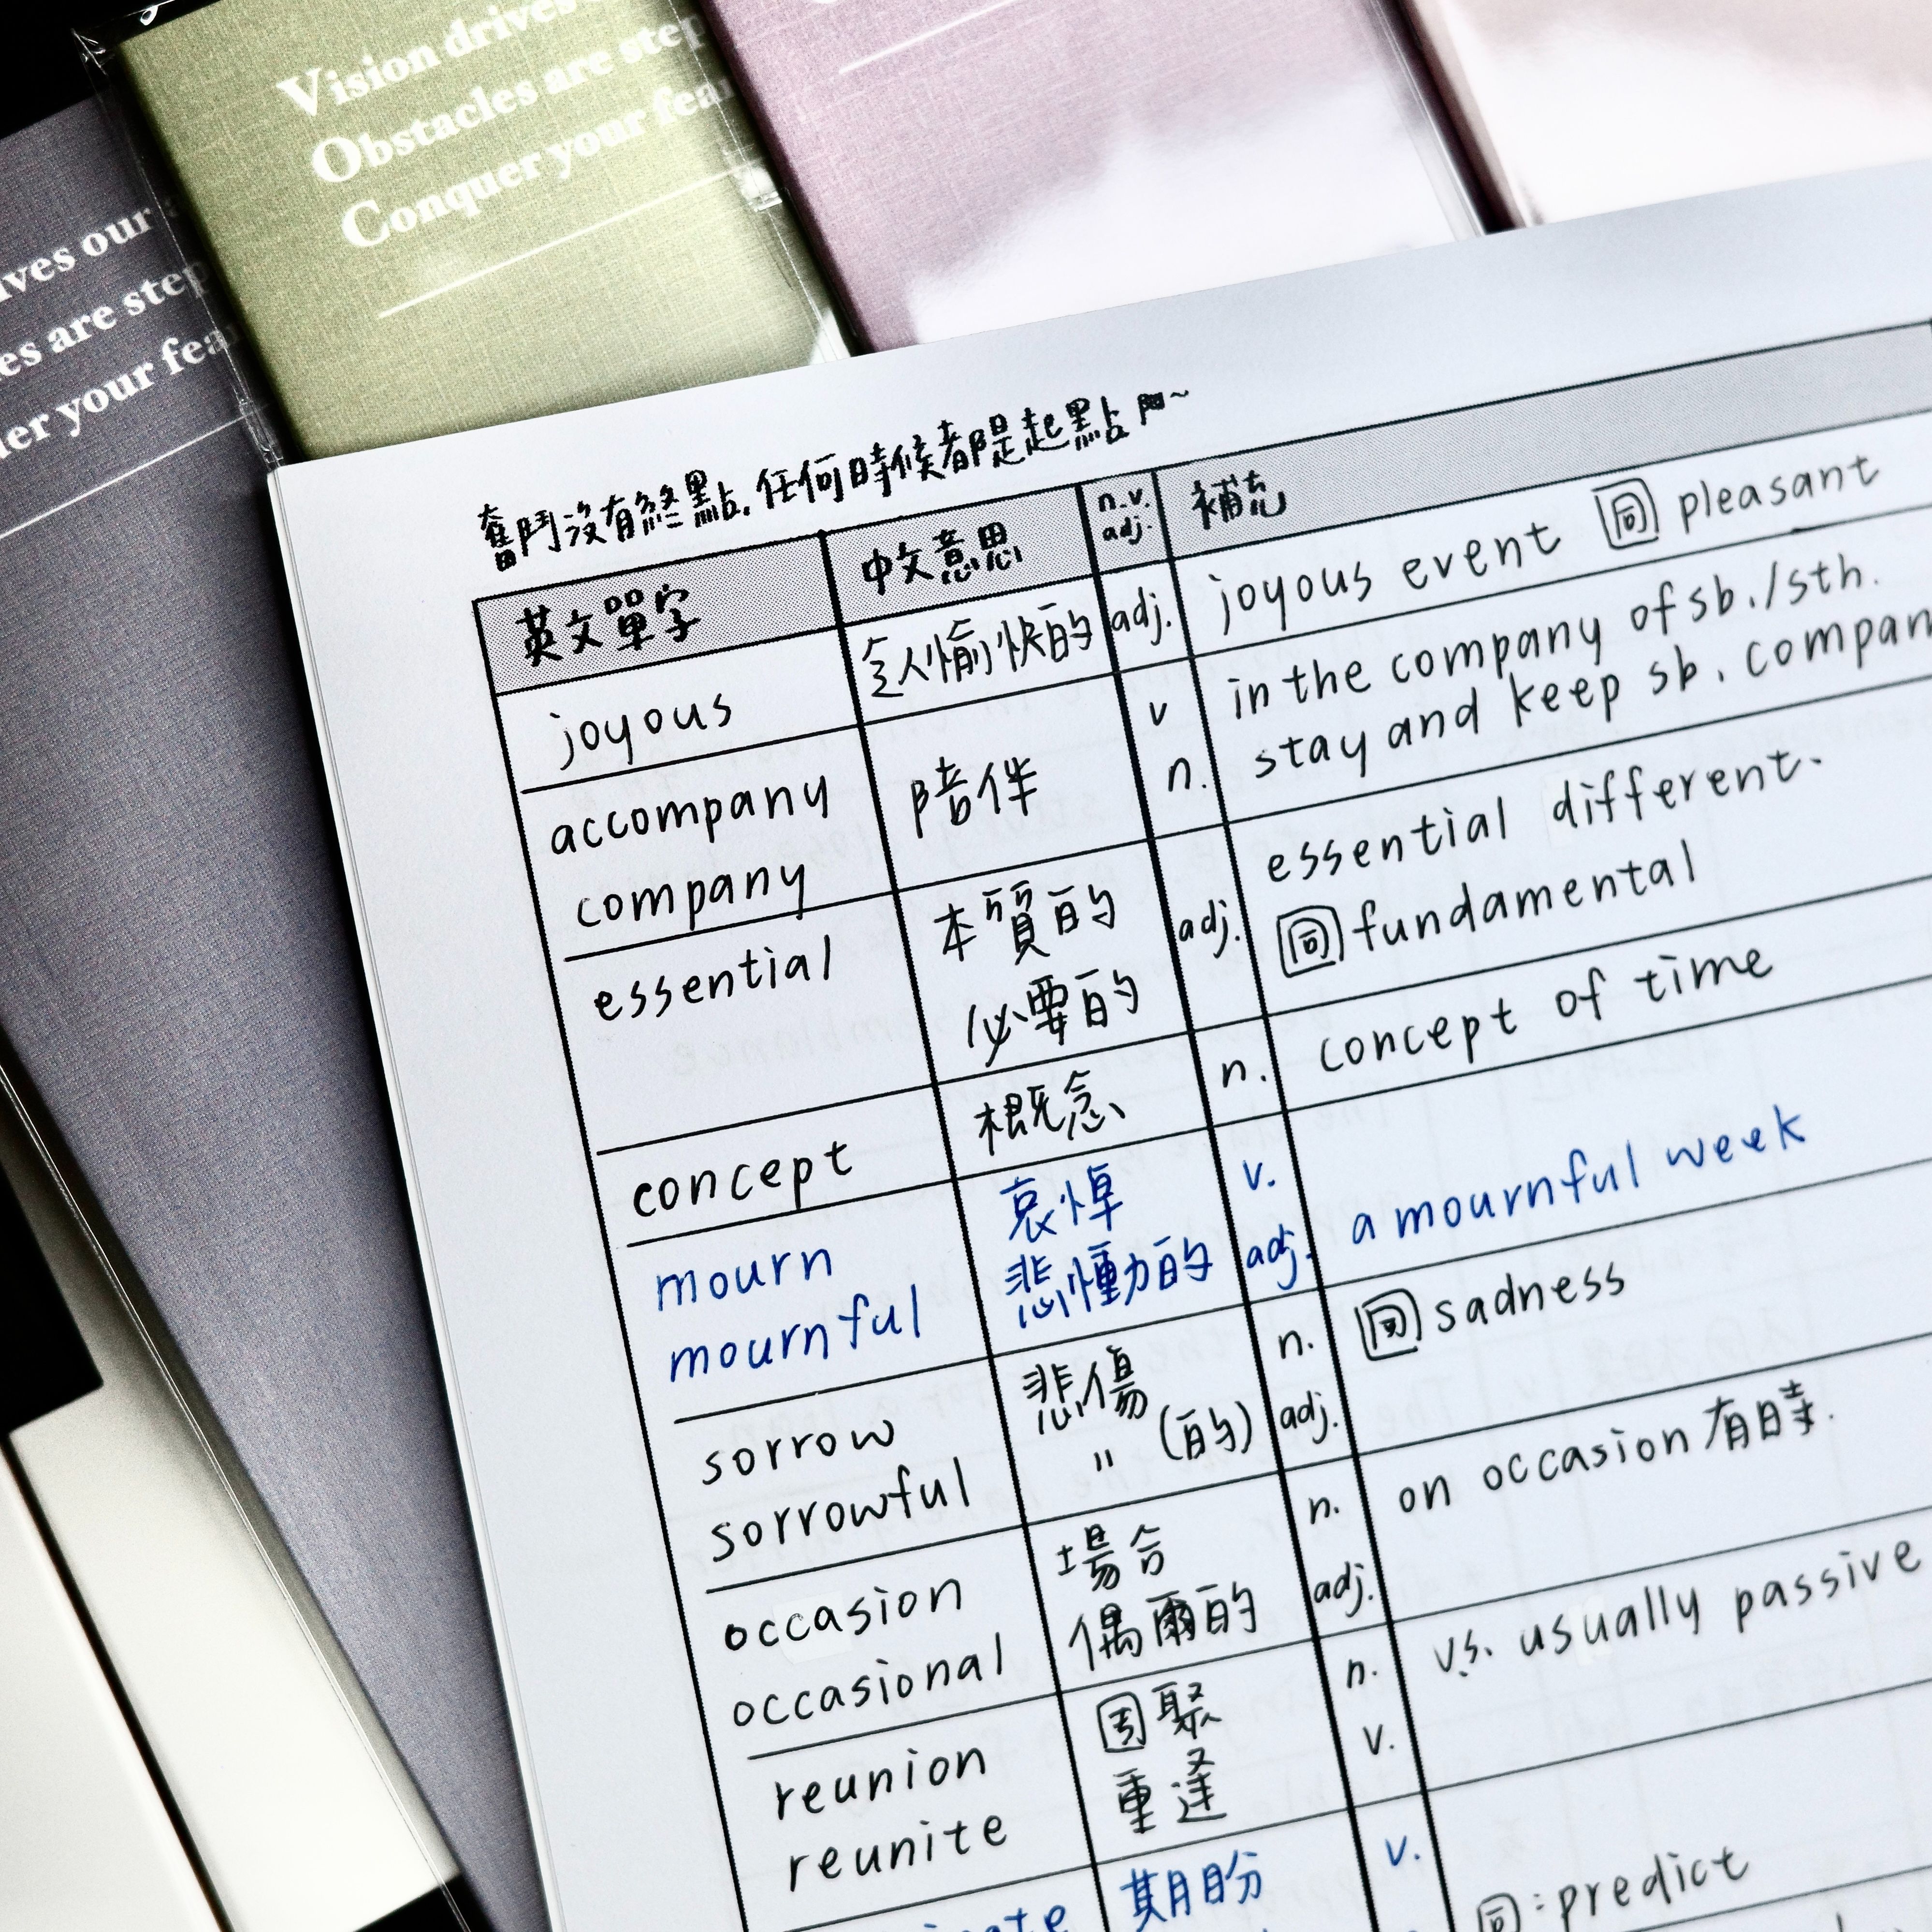 Vision drives
Obstacles are step
Conquer your fear
ives our
es are step
er your fea
奮鬥沒有終點,任何時候都是起點
英文單字 中文意思 n.v.adj. 補充
joyous 令人愉快的 adj. joyous event 同 pleasant
accompany 陪伴 v in the company of sb./sth.
company n. stay and keep sb. compan
essential 本質的 adj. essential different.
必要的 同 fundamental
concept 概念 n. concept of time
mourn 哀悼 v.
mournful 悲慟的 adj. a mournful week
sorrow 悲傷 n. 同 sadness
sorrowful " (的) adj.
occasion 場合 n. on occasion 有時.
occasional 偶爾的 adj.
reunion 團聚 n. v.s. usually passive
reunite 重逢 v.
期盼 v. 同:predict